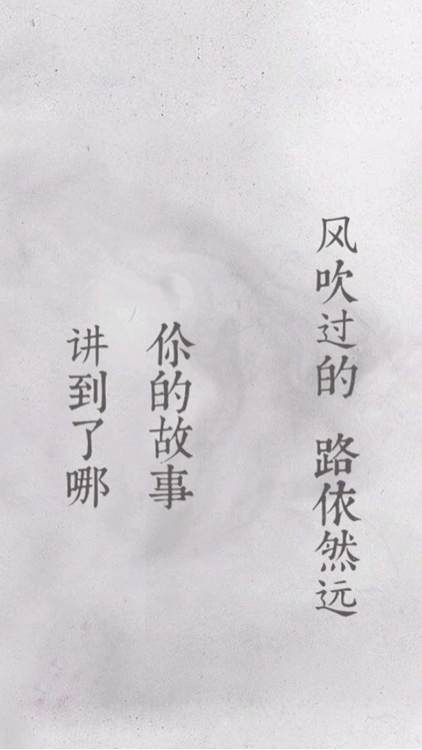 风吹过的 路依然远
你的故事
讲到了哪